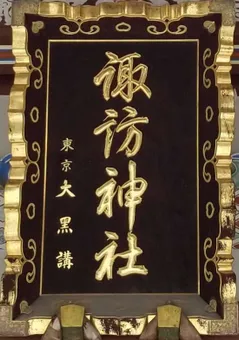 諏訪神社
東京大黒講